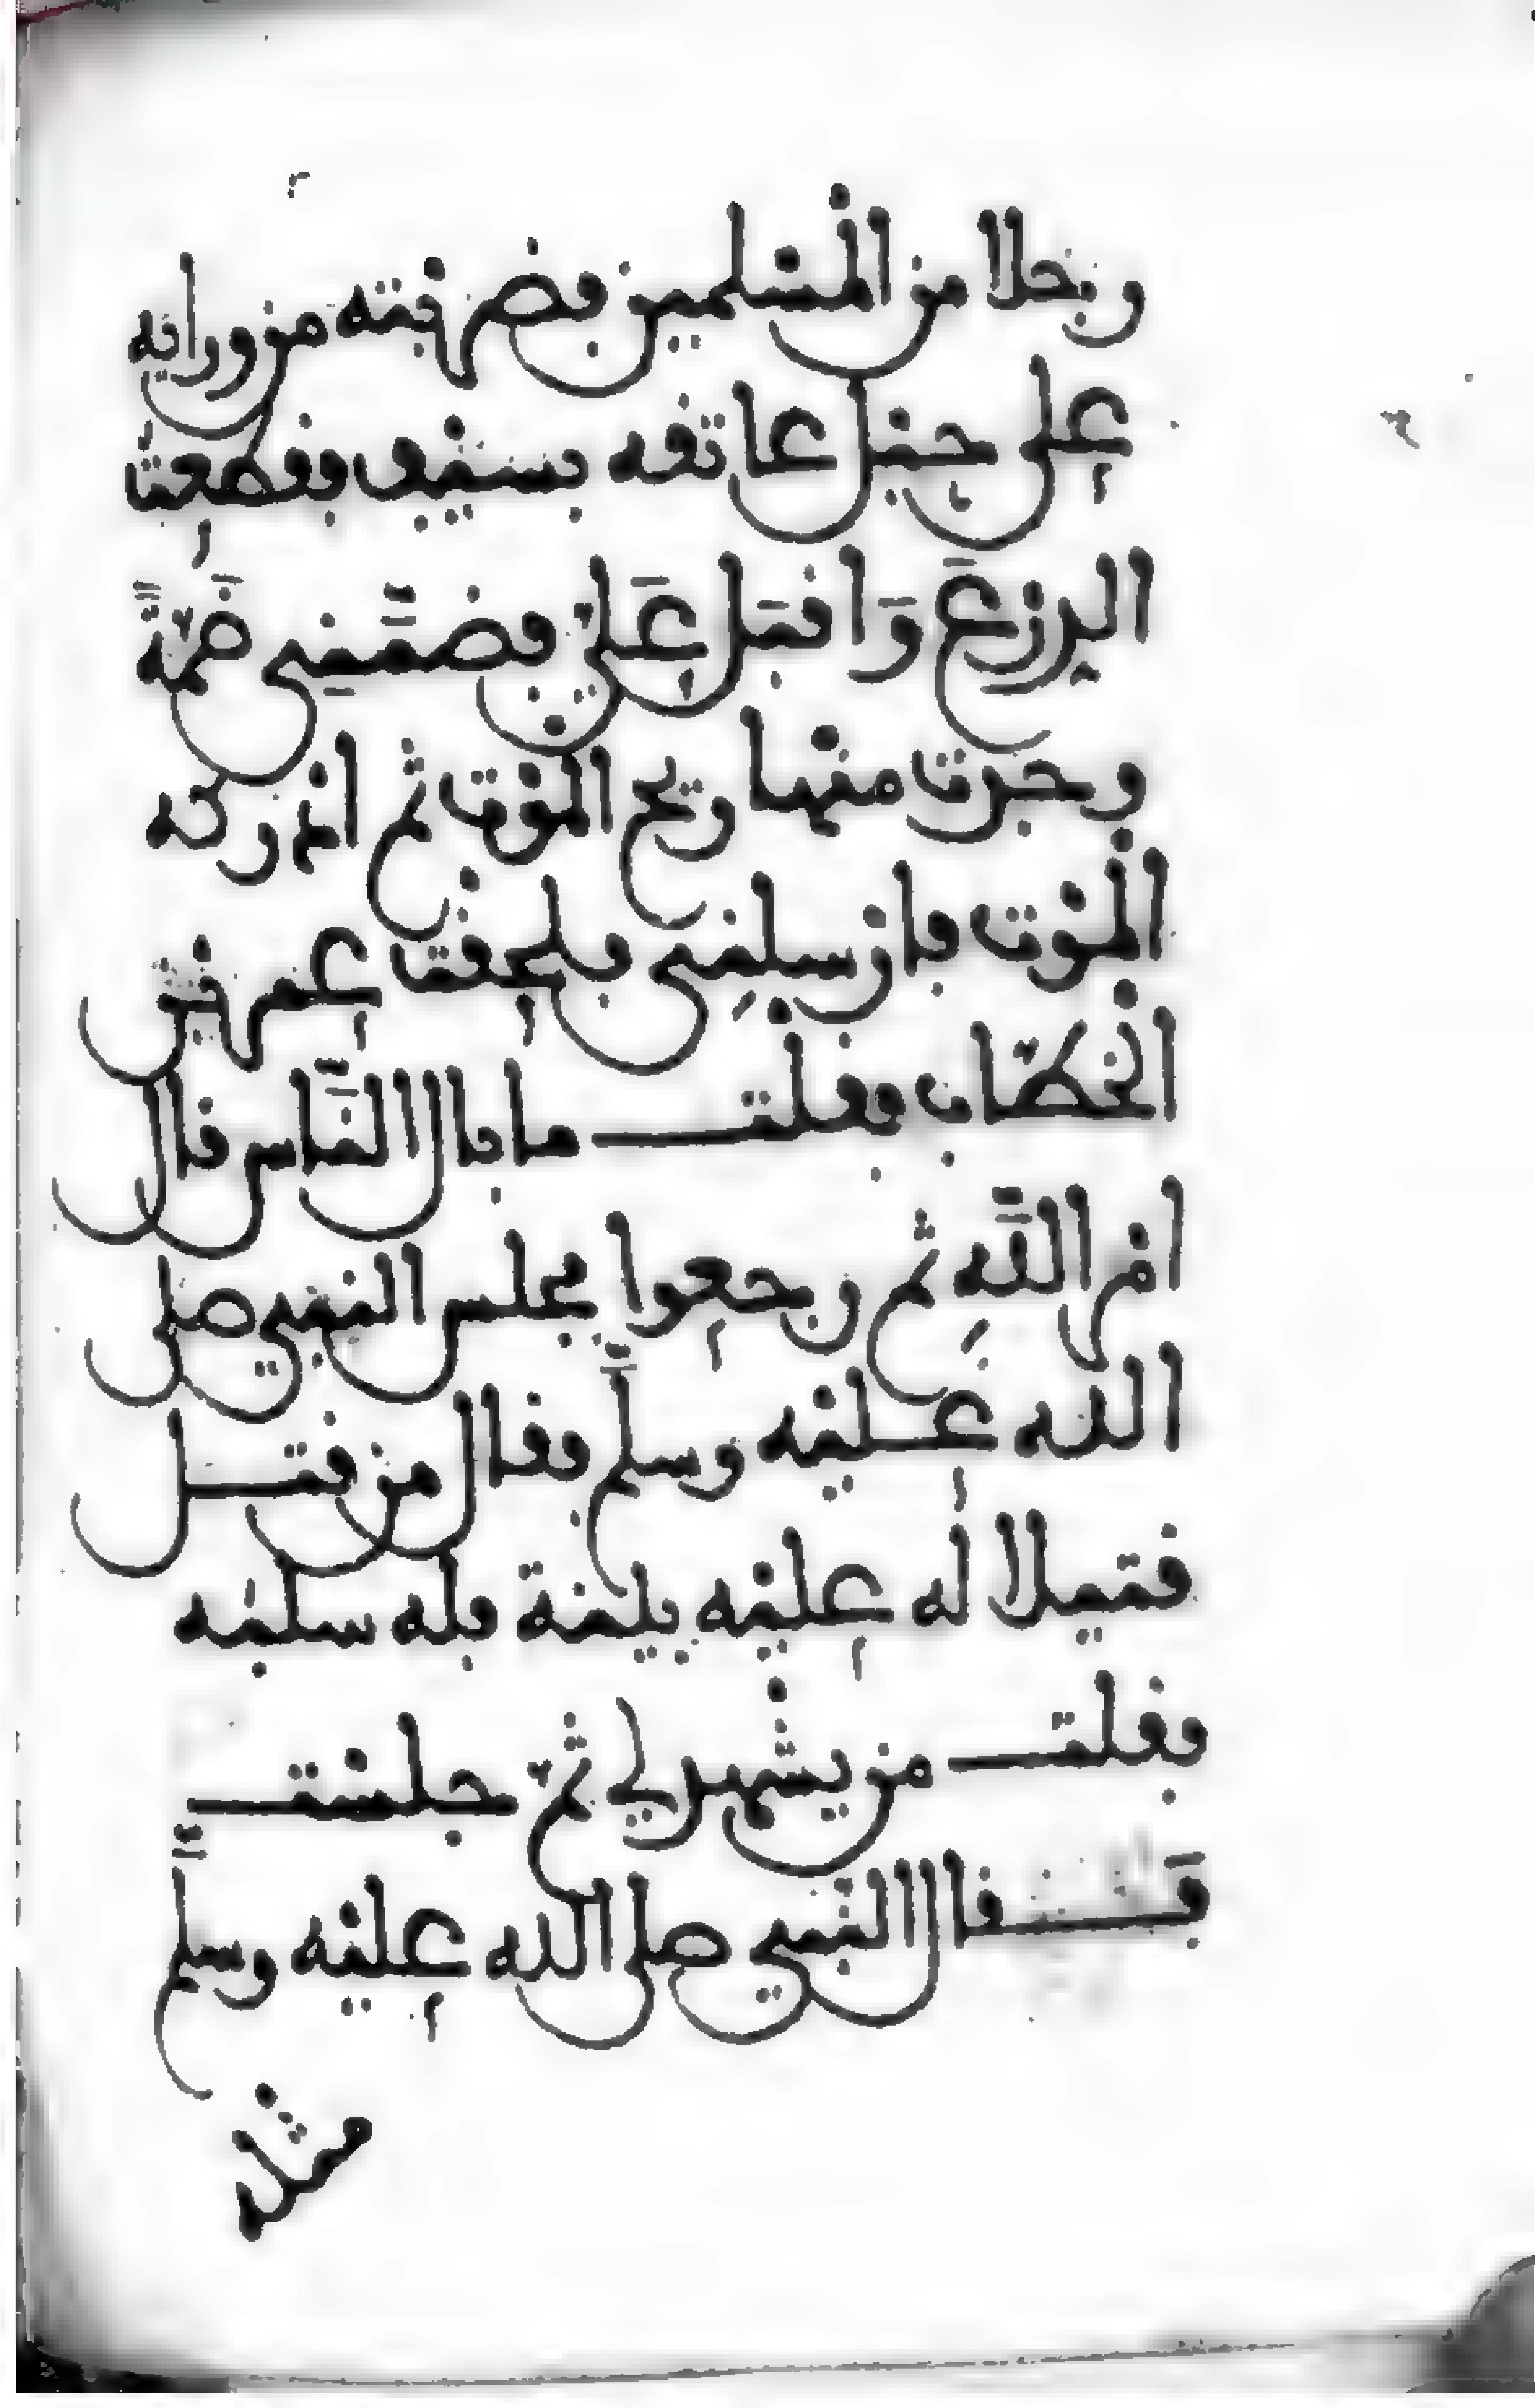 رجلا من المسلمين فضربته من ورائه
على حبل عاتقه بسيف فقطعت
الدرع وَاقبَل عَليّ فضمَّني ضَمَّةً
وجدت منها ريح الموْت ثم ادْركه
الموْت فارْسلني فلحقت عمر بْن
الخطّاب فقلت ما بال النَّاس قال
امْر اللَّهِ ثم رجعوا فجلس النبي صلى
الله عليْه وسلَّم فقال من قتل
قتيلا له عليْه بينة فله سلبُه
فقلت من يشْهد لي ثمّ جلسْت
فَقال النّبي صلى الله عليْه وسلَّم
مثْله